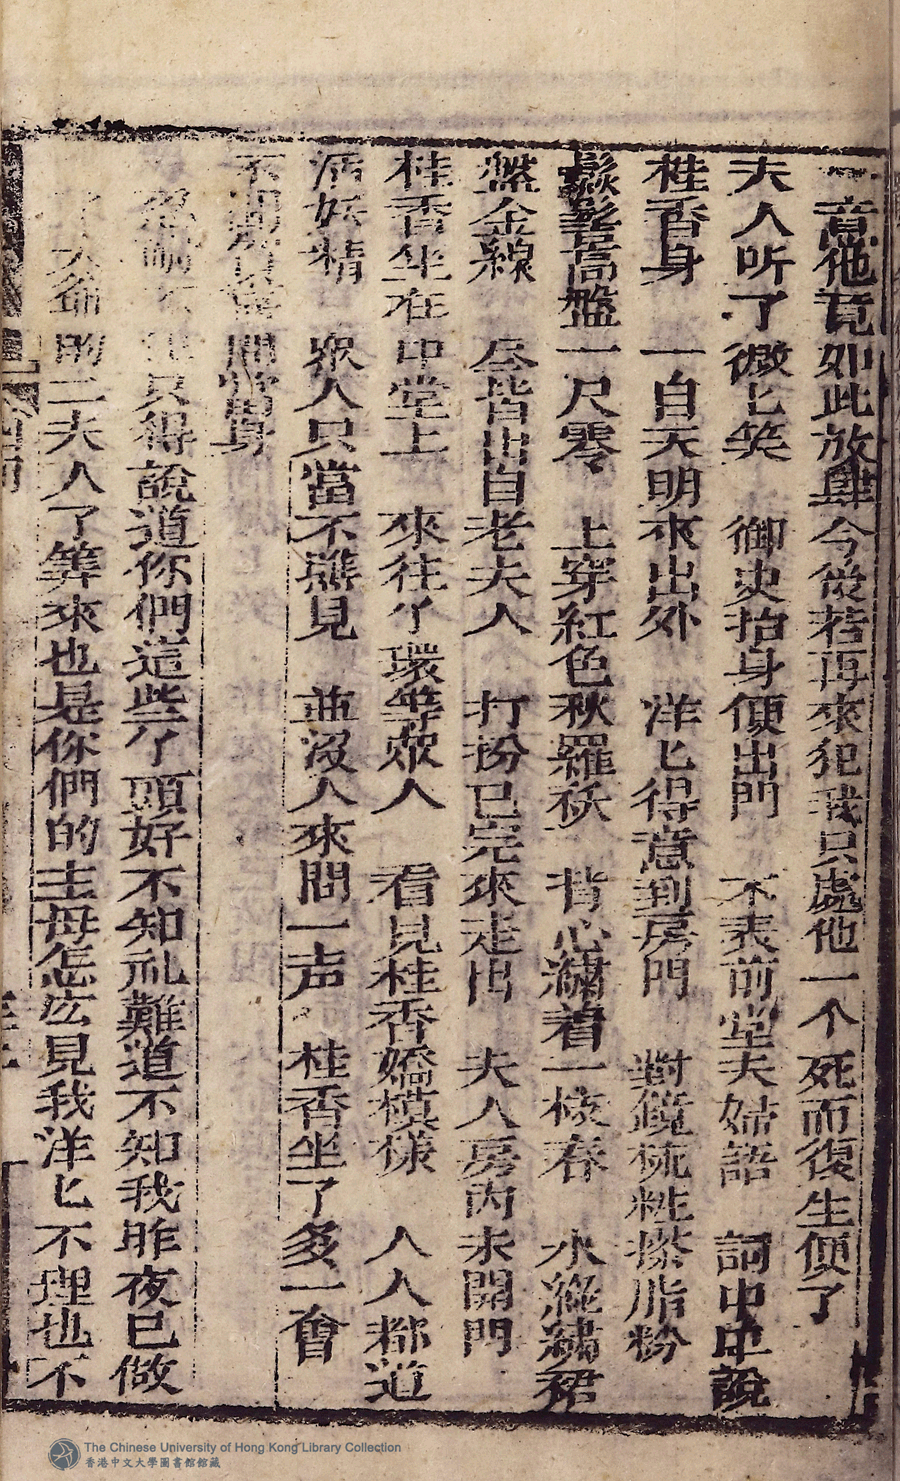 音他竟如此放肆今後若再來犯我只處他一个死而復生便了
夫人听了微匕笑　御史抬身便出門　不表前堂夫婦語　詞中中說
桂香身　一自天明來出外　洋匕得意到房門　對鏡梳粧搽脂粉
高盤一尺零　上穿紅色秋羅袄　背心繡着一枝春　水綠繡裙
盤金線　尽皆出自老夫人　打扮已完來走出　夫人房內未開門
桂香坐在中堂上　來往丫環等衆人　看見桂香嬌模樣　人人都道
活妖精　衆人只當不瞧見　並沒人來問一声　桂香坐了多一會
不
忍耐不住只得說道你們這些丫頭好不知礼難道不知我昨夜已做
的二夫人了筭來也是你們的主母怎広見我洋匕不理也不
The Chinese University of Hong Kong Library Collection
香港中文大學圖書館館藏